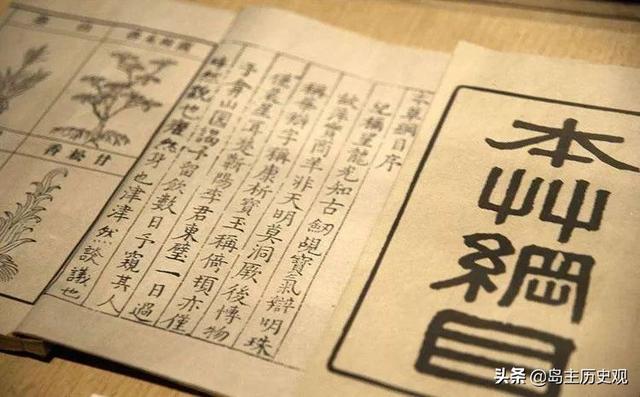 本草綱目序
紀稱望龍光知古劍覘寶氣辯明珠
故萍實商羊非天明莫洞厥後博物
稱華辯字稱康析寶玉稱倚頓亦僅
僅晨星耳楚蘄陽李君東璧一日過
予弇山園謁予留飲數日予窺其人
睟然貌也癯然身也津津然談議也
本艸綱目
甘松香
头条 @岛主历史观